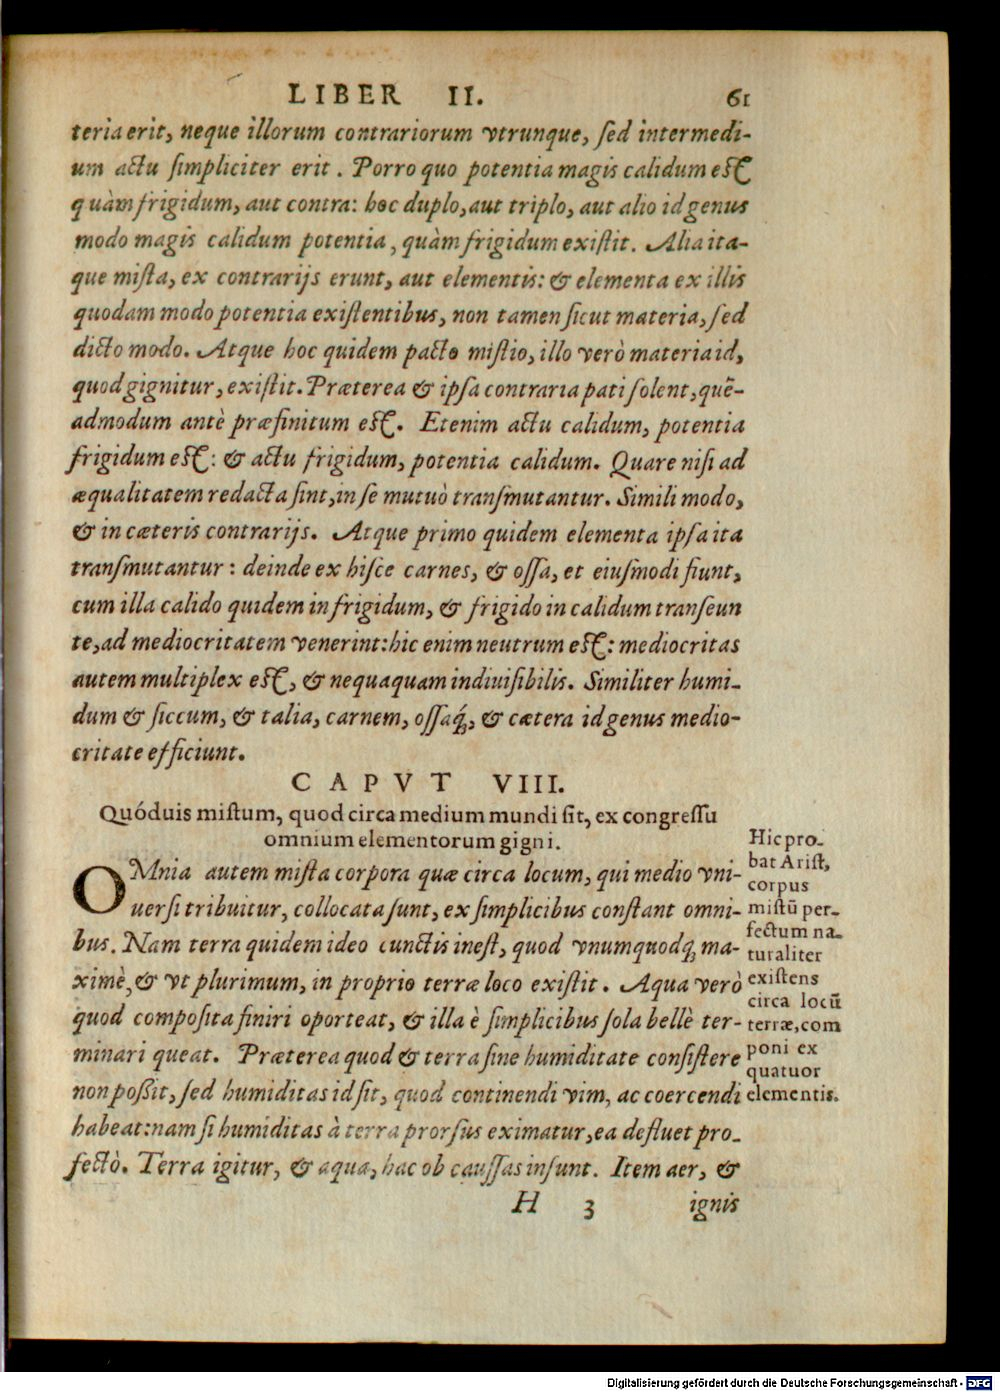 LIBER II. 61
teria erit, neque illorum contrariorum vtrunque, sed intermedi-
um actu simpliciter erit . Porro quo potentia magis calidum est
quàm frigidum, aut contra: hoc duplo, aut triplo, aut alio id genus
modo magis calidum potentia , quàm frigidum existit. Alia ita-
que mista, ex contrarijs erunt, aut elementis: & elementa ex illis
quodam modo potentia existentibus, non tamen sicut materia, sed
dicto modo. Atque hoc quidem pacto mistio, illo verò materia id,
quod gignitur, existit. Præterea & ipsa contraria pati solent, quē-
admodum antè præfinitum est. Etenim actu calidum, potentia
frigidum est: & actu frigidum, potentia calidum. Quare nisi ad
æqualitatem redacta sint, in se mutuò transmutantur. Simili modo,
& in cæteris contrarijs. Atque primo quidem elementa ipsa ita
transmutantur : deinde ex hisce carnes, & ossa, et eiusmodi fiunt,
cum illa calido quidem in frigidum, & frigido in calidum transeun
te, ad mediocritatem venerint: hic enim neutrum est: mediocritas
autem multiplex est, & nequaquam indiuisibilis. Similiter humi-
dum & siccum, & talia, carnem, ossaq́;, & cætera id genus medio-
critate efficiunt.
CAPVT VIII.
Quóduis mistum, quod circa medium mundi sit, ex congressu
omnium elementorum gigni.
OMnia autem mista corpora quæ circa locum, qui medio vni-
uersi tribuitur, collocata sunt, ex simplicibus constant omni-
bus. Nam terra quidem ideo cunctis inest, quod vnumquodq; ma-
ximè, & vt plurimum, in proprio terræ loco existit . Aqua verò
quod composita finiri oporteat, & illa è simplicibus sola bellè ter-
minari queat. Præterea quod & terra sine humiditate consistere
non possit, sed humiditas id sit, quod continendi vim, ac coercendi
habeat: nam si humiditas à terra prorsus eximatur, ea defluet pro-
fectò. Terra igitur, & aqua, hac ob caussas insunt. Item aer, &
H 3 ignis
Hic pro-
bat Arist,
corpus
mistū per-
fectum na-
turaliter
existens
circa locū
terræ, com
poni ex
quatuor
elementis.
Digitalisierung gefördert durch die Deutsche Forschungsgemeinschaft - DFG